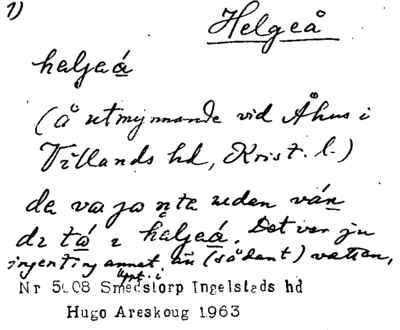 1)
Helgeå
haljeá
(å utmynnande vid Åhus i
Villands hd, Krist. l.)
da va ja nta uden ván
di tá i haljaá. Det var ju
ingenting annat än (sådant) vatten,
upt. i
Nr 5008 Smedstorp Ingelstads hd
Hugo Areskoug 1963